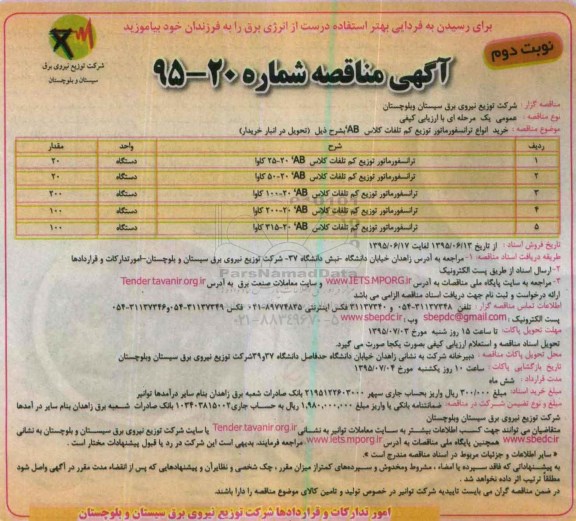 برای رسیدن به فردایی بهتر استفاده درست از انرژی برق را به فرزندان خود بیاموزید
نوبت دوم
آگهی مناقصه شماره ۲۰-۹۵
شرکت توزیع نیروی برق
سیستان و بلوچستان
مناقصه گزار : شرکت توزیع نیروی برق سیستان وبلوچستان
نوع مناقصه : عمومی یک مرحله ای با ارزیابی کیفی
موضوع مناقصه : خرید انواع ترانسفورماتور توزیع کم تلفات کلاس AB' بشرح ذیل (تحویل در انبار خریدار)
ردیف شرح واحد مقدار
۱ ترانسفورماتور توزیع کم تلفات کلاس AB' ۲۰-۲۵ کاوا دستگاه ۲۰
۲ ترانسفورماتور توزیع کم تلفات کلاس AB' ۲۰-۵۰ کاوا دستگاه ۲۰
۳ ترانسفورماتور توزیع کم تلفات کلاس AB' ۲۰-۱۰۰ کاوا دستگاه ۲۰۰
۴ ترانسفورماتور توزیع کم تلفات کلاس AB' ۲۰-۲۰۰ کاوا دستگاه ۱۰۰
۵ ترانسفورماتور توزیع کم تلفات کلاس AB' ۲۰-۳۱۵ کاوا دستگاه ۱۰۰
تاریخ فروش اسناد : از تاریخ ۱۳۹۵/۰۶/۱۳ لغایت ۱۳۹۵/۰۶/۱۷
طریقه دریافت اسناد مناقصه : ۱- مراجعه به آدرس زاهدان خیابان دانشگاه -نبش دانشگاه ۳۷- شرکت توزیع نیروی برق سیستان و بلوچستان-امورتدارکات و قراردادها
۲- ارسال اسناد از طریق پست الکترونیک
۳- مراجعه به سایت پایگاه ملی مناقصات به آدرس www.IETS.MPORG.ir و سایت معاملات صنعت برق به آدرس Tender.tavanir.org.ir
ارائه درخواست و ثبت نام جهت دریافت اسناد مناقصه الزامی می باشد
اطلاعات تماس مناقصه گزار : تلفن ۳۱۱۳۷۲۴۸-۰۵۴ و ۳۱۱۳۷۳۴۰ فکس اینترنتی ۸۹۷۷۴۸۳۵-۰۲۱ فکس ۳۱۱۳۷۳۴۹-۰۵۴و۳۱۱۳۷۳۴۶-۰۵۴
پست الکترونیکی : sbepdc@gmail.com وب : www.sbepdc.ir
مهلت تحویل پاکات : تا ساعت ۱۵ روز شنبه مورخ ۱۳۹۵/۰۷/۰۳
تحویل اسناد مناقصه و استعلام ارزیابی کیفی بصورت یکجا صورت می گیرد.
محل تحویل پاکات مناقصه : دبیرخانه شرکت به نشانی زاهدان خیابان دانشگاه حدفاصل دانشگاه ۳۷و۳۹شرکت توزیع نیروی برق سیستان وبلوچستان
تاریخ بازگشایی پاکات : ساعت ۱۰ روز یکشنبه مورخ ۱۳۹۵/۰۷/۰۴
مدت قرارداد : شش ماه
مبلغ خرید اسناد: مبلغ ۳۰۰/۰۰۰ ریال واریز بحساب جاری سپهر ۲۱۹۵۱۲۲۶۰۳۰۰۰ بانک صادرات شعبه برق زاهدان بنام سایر درآمدها توانیر
مبلغ و نوع تضمین شرکت در مناقصه: ضمانتنامه بانکی یا واریز مبلغ ۱,۹۸۰,۰۰۰,۰۰۰ ریال به حساب جاری ۱۰۳۴۰۳۸۱۵۰۰۲ بانک صادرات شعبه برق زاهدان بنام سایر در آمدها
شرکت توزیع نیروی برق سیستان وبلوچستان
متقاضیان می توانند جهت کسب اطلاعات بیشتر به سایت معاملات توانیر به نشانی Tender.tavanir.org.ir یا سایت شرکت توزیع نیروی برق سیستان و بلوچستان به نشانی
www.sbedc.ir همچنین پایگاه ملی مناقصات به آدرس www.iets.mporg.ir مراجعه فرمایند. بدیهی است این شرکت در رد یا قبول پیشنهادات مختار است .
« سایر اطلاعات و جزئیات مربوط در اسناد مناقصه مندرج است »
به پیشنهاداتی که فاقد سپرده یا امضاء ، مشروط ومخدوش و سپرده‌های کمتراز میزان مقرر ، چک شخصی و نظایرآن و پیشنهادهایی که پس از انقضاء مدت مقرر در آگهی واصل شود
مطلقاً ترتیب اثر داده نخواهد شد .
در ضمن مناقصه گران می بایست تاییدیه شرکت توانیر در خصوص تولید و تامین کالای موضوع مناقصه را دارا باشند.
امور تدارکات و قراردادها شرکت توزیع نیروی برق سیستان و بلوچستان
ParsNamadData
۰۲۱-۸۸۳۴۹۶۷۰-۵